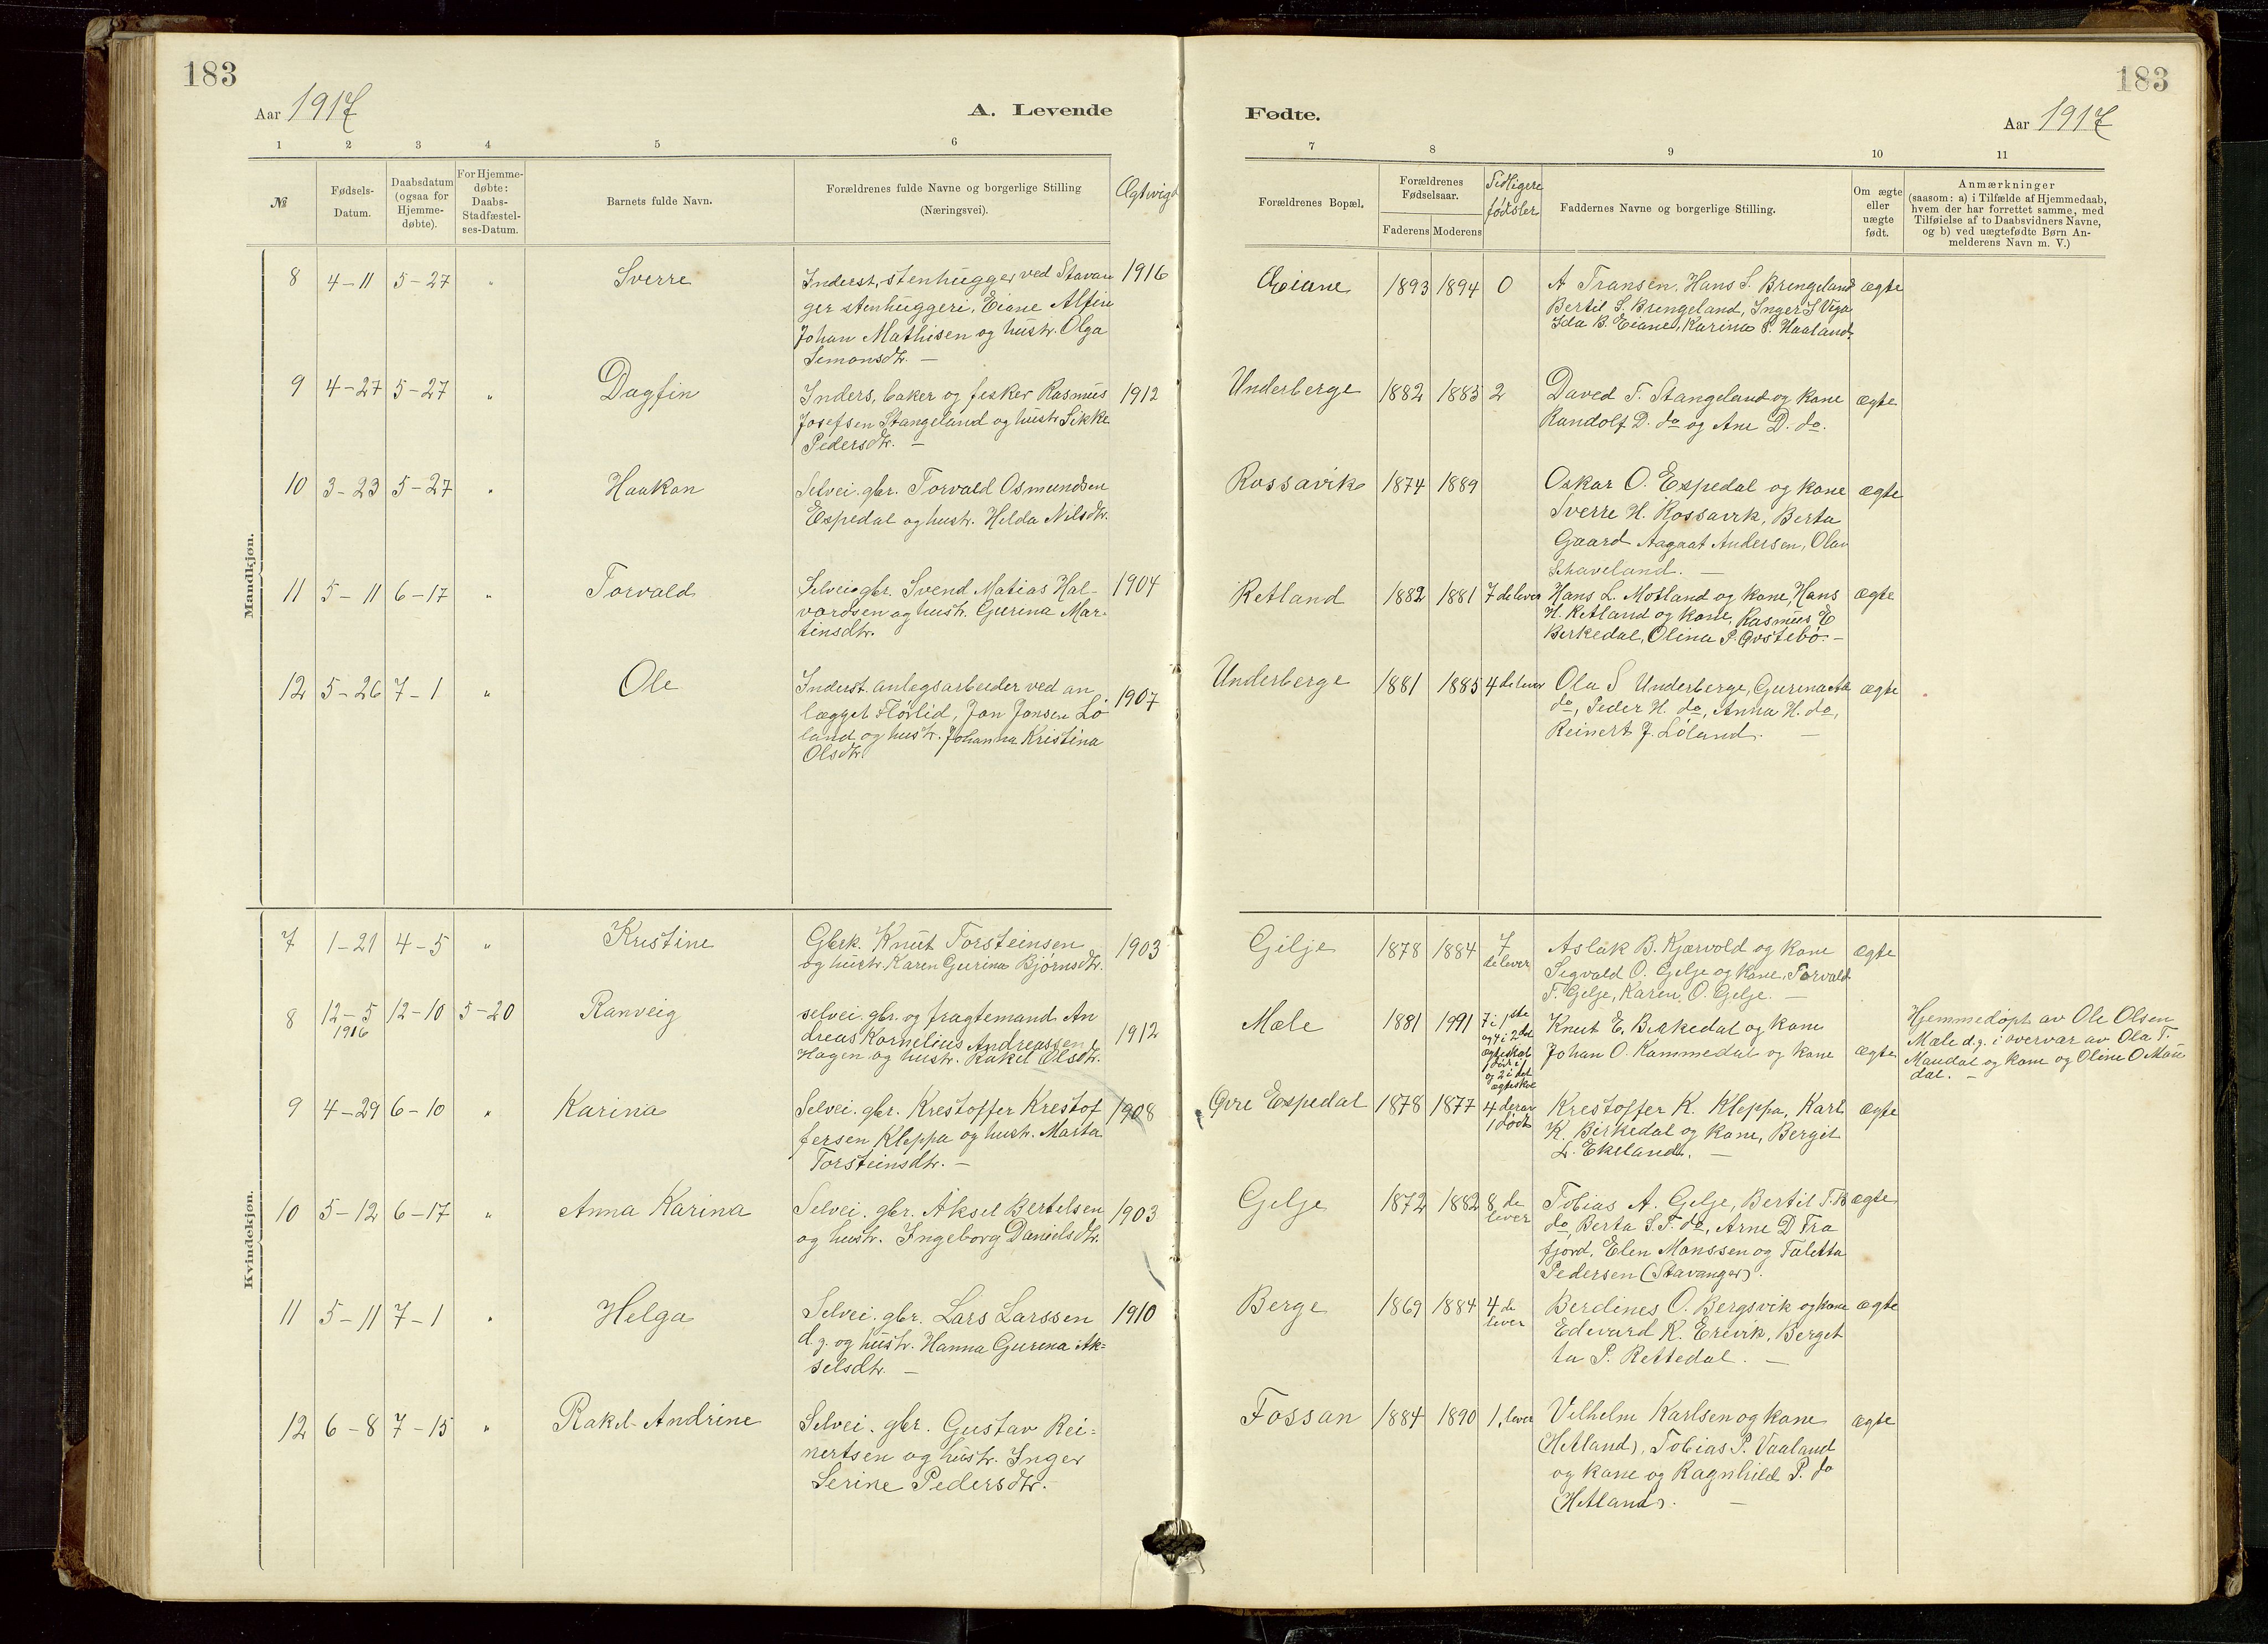 183
Aar 1917
A. Levende
1 2 3 4 5 6
№
Fødsels-Datum.
Daabsdatum (ogsaa for Hjemme-døbte).
For Hjemme-døbte: Daabs-Stadfæstel-ses-Datum.
Barnets fulde Navn.
Forældrenes fulde Navne og borgerlige Stilling
(Næringsvei).
Ægtvigd
Mandkjøn.
8 4-11 5-27 " Sverre
Inderst, stenhugger ved Stavan
ger stenhuggeri, Eiane Alfin
Johan Mathisen og hustr. Olga
Simonsdtr. —
1916
9 4-27 5-27 " Dagfin
Inders, baker og fisker Rasmus
Josefsen Stangeland og hustr. Sikke
Pedersdtr. —
1912
10 3-23 5-27 " Haakon
Selvei. gbr. Torvald Osmundsen
Espedal og hustr. Helda Nilsdtr.
11 5-11 6-17 " Torvald
Selveigbr. Svend Matias Hal-
vardsen og hustr. Gurina Mar-
tinsdtr.
1904
12 5-26 7-1 " Ole
Inderst. anlegsarbeider ved an
lægget Flørlid, Jon Jonsen Lø
land og hustr. Johanna Kristina
Olsdtr.
1907
Kvindekjøn.
7 1-21 4-5 " Kristine
Gbrk. Knut Torsteinsen
og hustr. Karen Gurina Bjørnsdtr.
1903
8 12-5 12-10 5-20 Ranveig
1916
selvei. gbr. og fragtemand An
dreas Kornelius Andreassen
Hagen og hustr. Rakel Olsdtr.
1912
9 4-29 6-10 " Karina
Selvei. gbr. Krestoffer Krestof
fersen Kleppa og hustr. Marta
Torsteinsdtr. —
1908
10 5-12 6-17 " Anna Karina
Selvei. gbr. Aksel Bertelsen
og hustr. Ingeborg Danielsdtr.
1903
11 5-11 7-1 " Helga
Selvei. gbr. Lars Larssen
d.y. og hustr. Hanna Gurina Ak=
selsdtr. —
1910
12 6-8 7-15 " Rakel-Andrine
Selvei. gbr. Gustav Rei=
nertsen og hustr. Inger
Serine Pedersdtr.
183
Fødte.
Aar 1917
7 8 9 10 11
Forældrenes Bopæl.
Forældrenes Fødselsaar.
Faderens Moderens
Tidligere fødsler
Faddernes Navne og borgerlige Stilling.
Om ægte eller uægte født.
Anmærkninger
(saasom: a) i Tilfælde af Hjemmedaab,
hvem der har forrettet samme, med
Tilføielse af to Daabsvidners Navne,
og b) ved uægtefødte Børn An-
melderens Navn m. V.)
Eiane 1893 1894 0
A Transen, Hans S. Bringeland
Bertil S. Bringeland, Inger S Viga
Ida B. Eiane, Karina P. Haaland.
ægte
Underberge 1882 1883 2
David T. Stangeland og kone
Randolf D. do og Ane D. do.
ægte
Rossavik 1874 1889
Oskar O. Espedal og kone
Sverre H. Rossavik, Berta
Gaard Aagaat Andersen, Olav
Skaveland. —
ægte
Retland 1882 1881 7 de lever
Hans L. Motland og kone, Hans
H. Retland og kone, Rasmus E
Birkedal, Olina P. Qvstebø. —
ægte
Underberge 1881 1885 4 de lever
Ola S Underberge, Gurina
do, Peder H. do, Anna H. do,
Reinert J. Løland. —
ægte
Gilje 1878 1884 7
de lever
Aslak B. Kjærvold og kone
Sigvald O. Gilje og kone, Torvald
T. Gilje, Karen O. Gilje. —
ægte
Mæle 1881 1991 7 i 1ste
og 4 i 2det
ægteskab
og 2 i det
ægteskab
Knut E. Birkedal og kone
Johan O. Kommedal og kone
ægte
Hjemmedøpt av Ole Olsen
Mæle d.y. i overvær av Ola T.
Maudal og kone og Oline O Mau
dal. —
Øvre Espedal 1878 1877 4 derav
1 død
Krestoffer K. Kleppa, Karl
K. Birkedal og kone, Bergit
L. Ekeland. —
ægte
Gilje 1872 1882 8 de
lever
Tobias A. Gilje, Bertil T. B
do, Berta S. T. do, Arne D Fra
fjord, Elen Monssen og Taletta
Pedersen (Stavanger).
ægte
Berge 1869 1884 4 de
lever
Berdines O. Bergsvik og kone
Edevard K. Erevik, Berget
ta P. Rettedal. —
ægte
Fossan 1884 1890 1, lever
Vilhelm Karlsen og kone
(Hetland), Tobias P. Vaaland
og kone og Ragnhild P. do
(Hetland). —
ægte